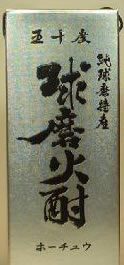 五十度
純球磨特産
球磨火酎
ホーチュウ